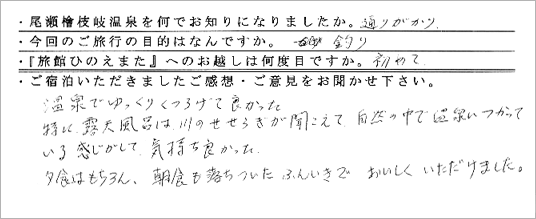 ・尾瀬檜枝岐温泉を何でお知りになりましたか。通りがかり
・今回のご旅行の目的はなんですか。 釣り
・『旅館ひのえまた』へのお越しは何度目ですか。初めて
・ご宿泊いただきましたご感想・ご意見をお聞かせ下さい。
温泉でゆっくりくつろげて良かった
特に、露天風呂は、川のせせらぎが聞こえて、自然の中で温泉につかって
いる感じがして、気持ち良かった。
夕食はもちろん、朝食も落ちついたふんいきで おいしくいただけました。